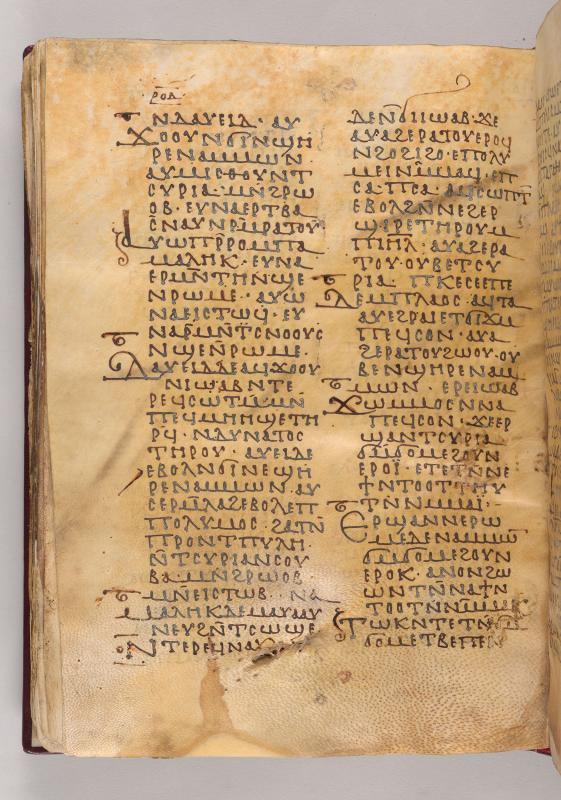 ⲣⲟⲇ
ⲛⲇⲁⲩⲉⲓⲇ· ⲁⲩ
ϫⲟⲟⲩⲛϭⲓⲛϣⲏ
ⲣⲉⲛⲁⲙⲙⲱⲛ·
ⲁⲩⲙⲓⲥⲑⲟⲩⲛⲧ
ⲥⲩⲣⲓⲁ· ⲙⲛ̄ϩⲣⲱ
ⲟⲃ· ⲉⲩⲛⲁⲉⲣⲧⲃⲁ
ⲥ̄ⲛⲁⲩⲛⲣⲙ̄ⲣⲁⲧⲟⲩ·
ⲁⲩⲱⲡⲣⲣⲟⲙⲡⲁ
ⲙⲁⲗⲏⲕ· ⲉⲩⲛⲁ
ⲉⲣⲙⲛ̄ⲧⲏⲛϣⲉ
ⲛⲣⲱⲙⲉ· ⲁⲩⲱ
ⲛⲁⲉⲓⲥⲧⲱϥ· ⲉⲩ
ⲛⲁⲣⲙⲛ̄ⲧⲥⲛⲟⲟⲩⲥ
ⲛϣⲉⲛ̄ⲣⲱⲙⲉ·
ⲇⲁⲩⲉⲓⲇⲇⲉⲁϥϫⲟⲟⲩ
ⲛⲓⲱⲁⲃⲛⲧⲉ
ⲣⲉϥⲥⲱⲧⲙ· ⲙⲛ
ⲡⲉϥⲙⲏⲏϣⲉⲧⲏ
ⲣϥ· ⲛⲇⲩⲛⲁⲧⲟⲥ
ⲧⲏⲣⲟⲩ· ⲁⲩⲉⲓⲇⲉ
ⲉⲃⲟⲗⲛϭⲓⲛⲉϣⲏ
ⲣⲉⲛⲁⲙⲙⲱⲛ· ⲁⲩ
ⲥⲉⲣⲙ̄ⲗⲁϩⲉⲃⲟⲗⲉⲡ
ⲡⲟⲗⲩⲙⲟⲥ· ϩⲁⲧⲛ̄
ⲡⲣⲟⲛⲧⲡⲩⲗⲏ·
ⲛ̄ⲧⲥⲩⲣⲓⲁⲛⲥⲟⲩ
ⲃⲁ· ⲙⲛ̄ϩⲣⲱⲟⲃ·
ⲙⲛ̄ⲉⲓⲥⲧⲱⲃ· ⲛⲁ
ⲙⲁⲗⲏⲕⲇⲉⲙⲁⲩⲁⲩ
ⲛⲉⲩϩⲛ̄ⲧⲥⲱϣⲉ
ⲛⲧⲉⲣⲉϥⲛⲁⲩ
ⲇⲉⲛ̄ϭⲓⲓⲱⲁⲃ· ϫⲉ
ⲁⲩⲁϩⲉⲣⲁⲧⲟⲩⲉⲣⲟϥ
ⲛϩⲟϩⲓϩⲟ· ⲉⲡⲟⲗⲩ
ⲙⲉⲓⲛⲙⲙⲁϥ· ⲉⲡ
ⲥⲁ· ⲡⲥⲁ· ⲁϥⲥⲱⲧⲡ̄
ⲉⲃⲟⲗϩⲛ̄ⲛⲉϩⲉⲣ
ϣⲓⲣⲉⲧⲏⲣⲟⲩⲙ
ⲡⲓⲏ̄ⲗ· ⲁⲩⲁϩⲉⲣⲁ
ⲧⲟⲩ· ⲟⲩⲃⲉⲧⲥⲩ
ⲣⲓⲁ· ⲡⲕⲉⲥⲉⲉⲡⲉ
ⲇⲉⲙⲡⲗⲁⲟⲥ· ⲁϥⲧⲁ
ⲁⲩⲉϩⲣⲁⲓⲉⲧϭⲓϫⲙ
ⲡⲉϥⲥⲟⲛ· ⲁⲩⲁ
ϩⲉⲣⲁⲧⲟⲩϩⲱⲟⲩ· ⲟⲩ
ⲃⲉⲛϣⲏⲣⲉⲛⲁⲙ
ⲙⲱⲛ· ⲉⲣⲉⲓⲱⲁⲃ
ϫⲱⲙⲙⲟⲥⲛⲛⲁ
ⲡⲉϥⲥⲟⲛ· ϫⲉⲉⲣ
ϣⲁⲛⲧⲥⲩⲣⲓⲁ
ϭⲙϭⲟⲙⲉϩⲟⲩⲛ
ⲉⲣⲟⲓ̈· ⲉⲧⲉⲧⲛⲛⲉ
ϯⲛⲧⲟⲟⲧⲧⲏⲩ
ⲧⲛⲛⲙⲙⲁⲓ̈·
ⲉⲣϣⲁⲛⲛⲉⲣⲱ
ⲙⲉⲇⲉⲛⲁⲙⲙⲱ̄
ϭⲙϭⲟⲙⲉϩⲟⲩⲛ
ⲉⲣⲟⲕ· ⲁⲛⲟⲛϩⲱ
ⲱⲛⲧⲛ̄ⲛⲁϯⲛ
ⲧⲟⲟⲧⲛ̄ⲛⲙⲙⲁⲕ
ⲧⲱⲕⲛⲧⲉⲧⲛ̄ϭⲙ
ϭⲟⲙⲉⲧⲃⲉⲡⲉⲛ